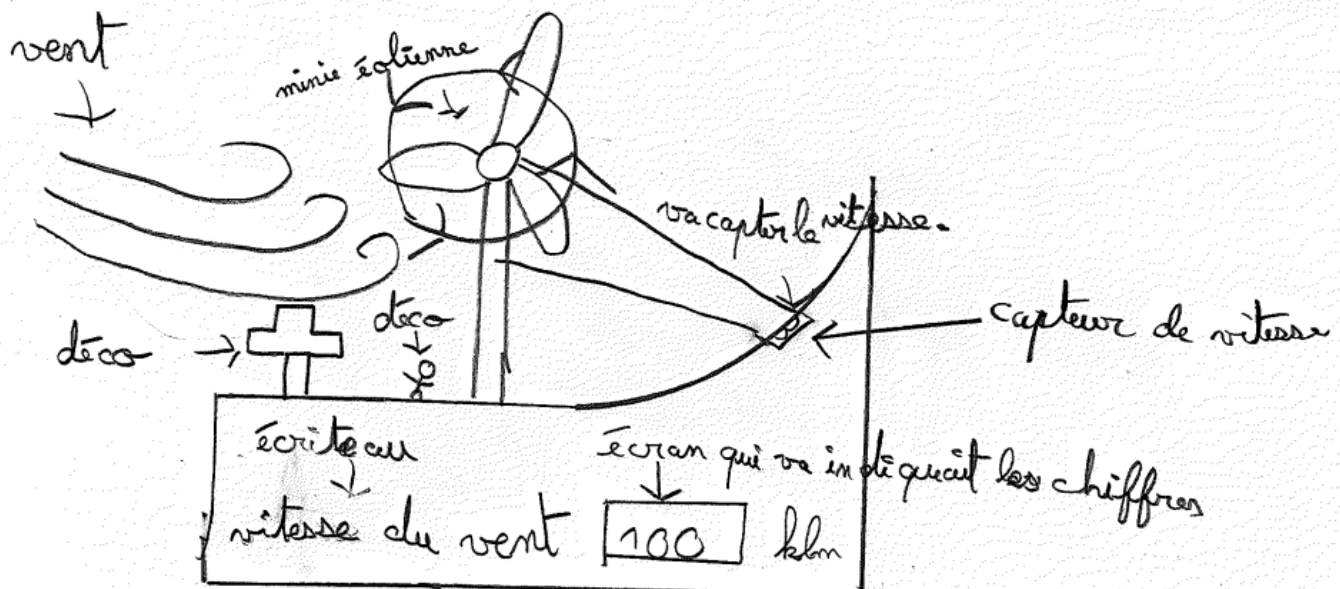 vent
minie éolienne
va capter la vitesse.
capteur de vitesse
déco
déco
écriteau
écran qui va indiquait les chiffres
vitesse du vent 100 kbm